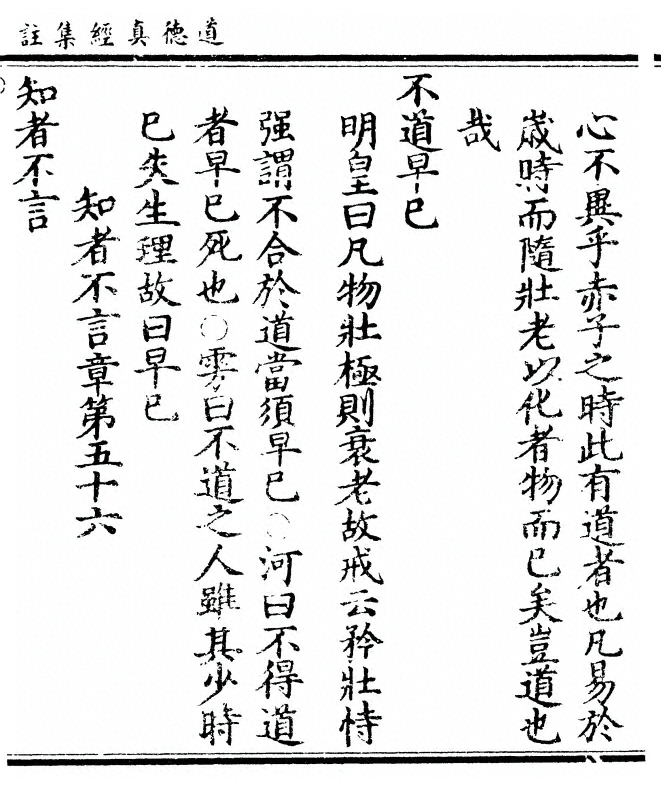 道德真經集註
心不異乎赤子之時此有道者也凡易於
歲時而隨壯老以化者物而已矣豈道也
哉
不道早已
明皇曰凡物壯極則衰老故戒云矜壯恃
强謂不合於道當須早已○河曰不得道
者早已死也○雱曰不道之人雖其少時
已失生理故曰早已
知者不言章第五十六
知者不言